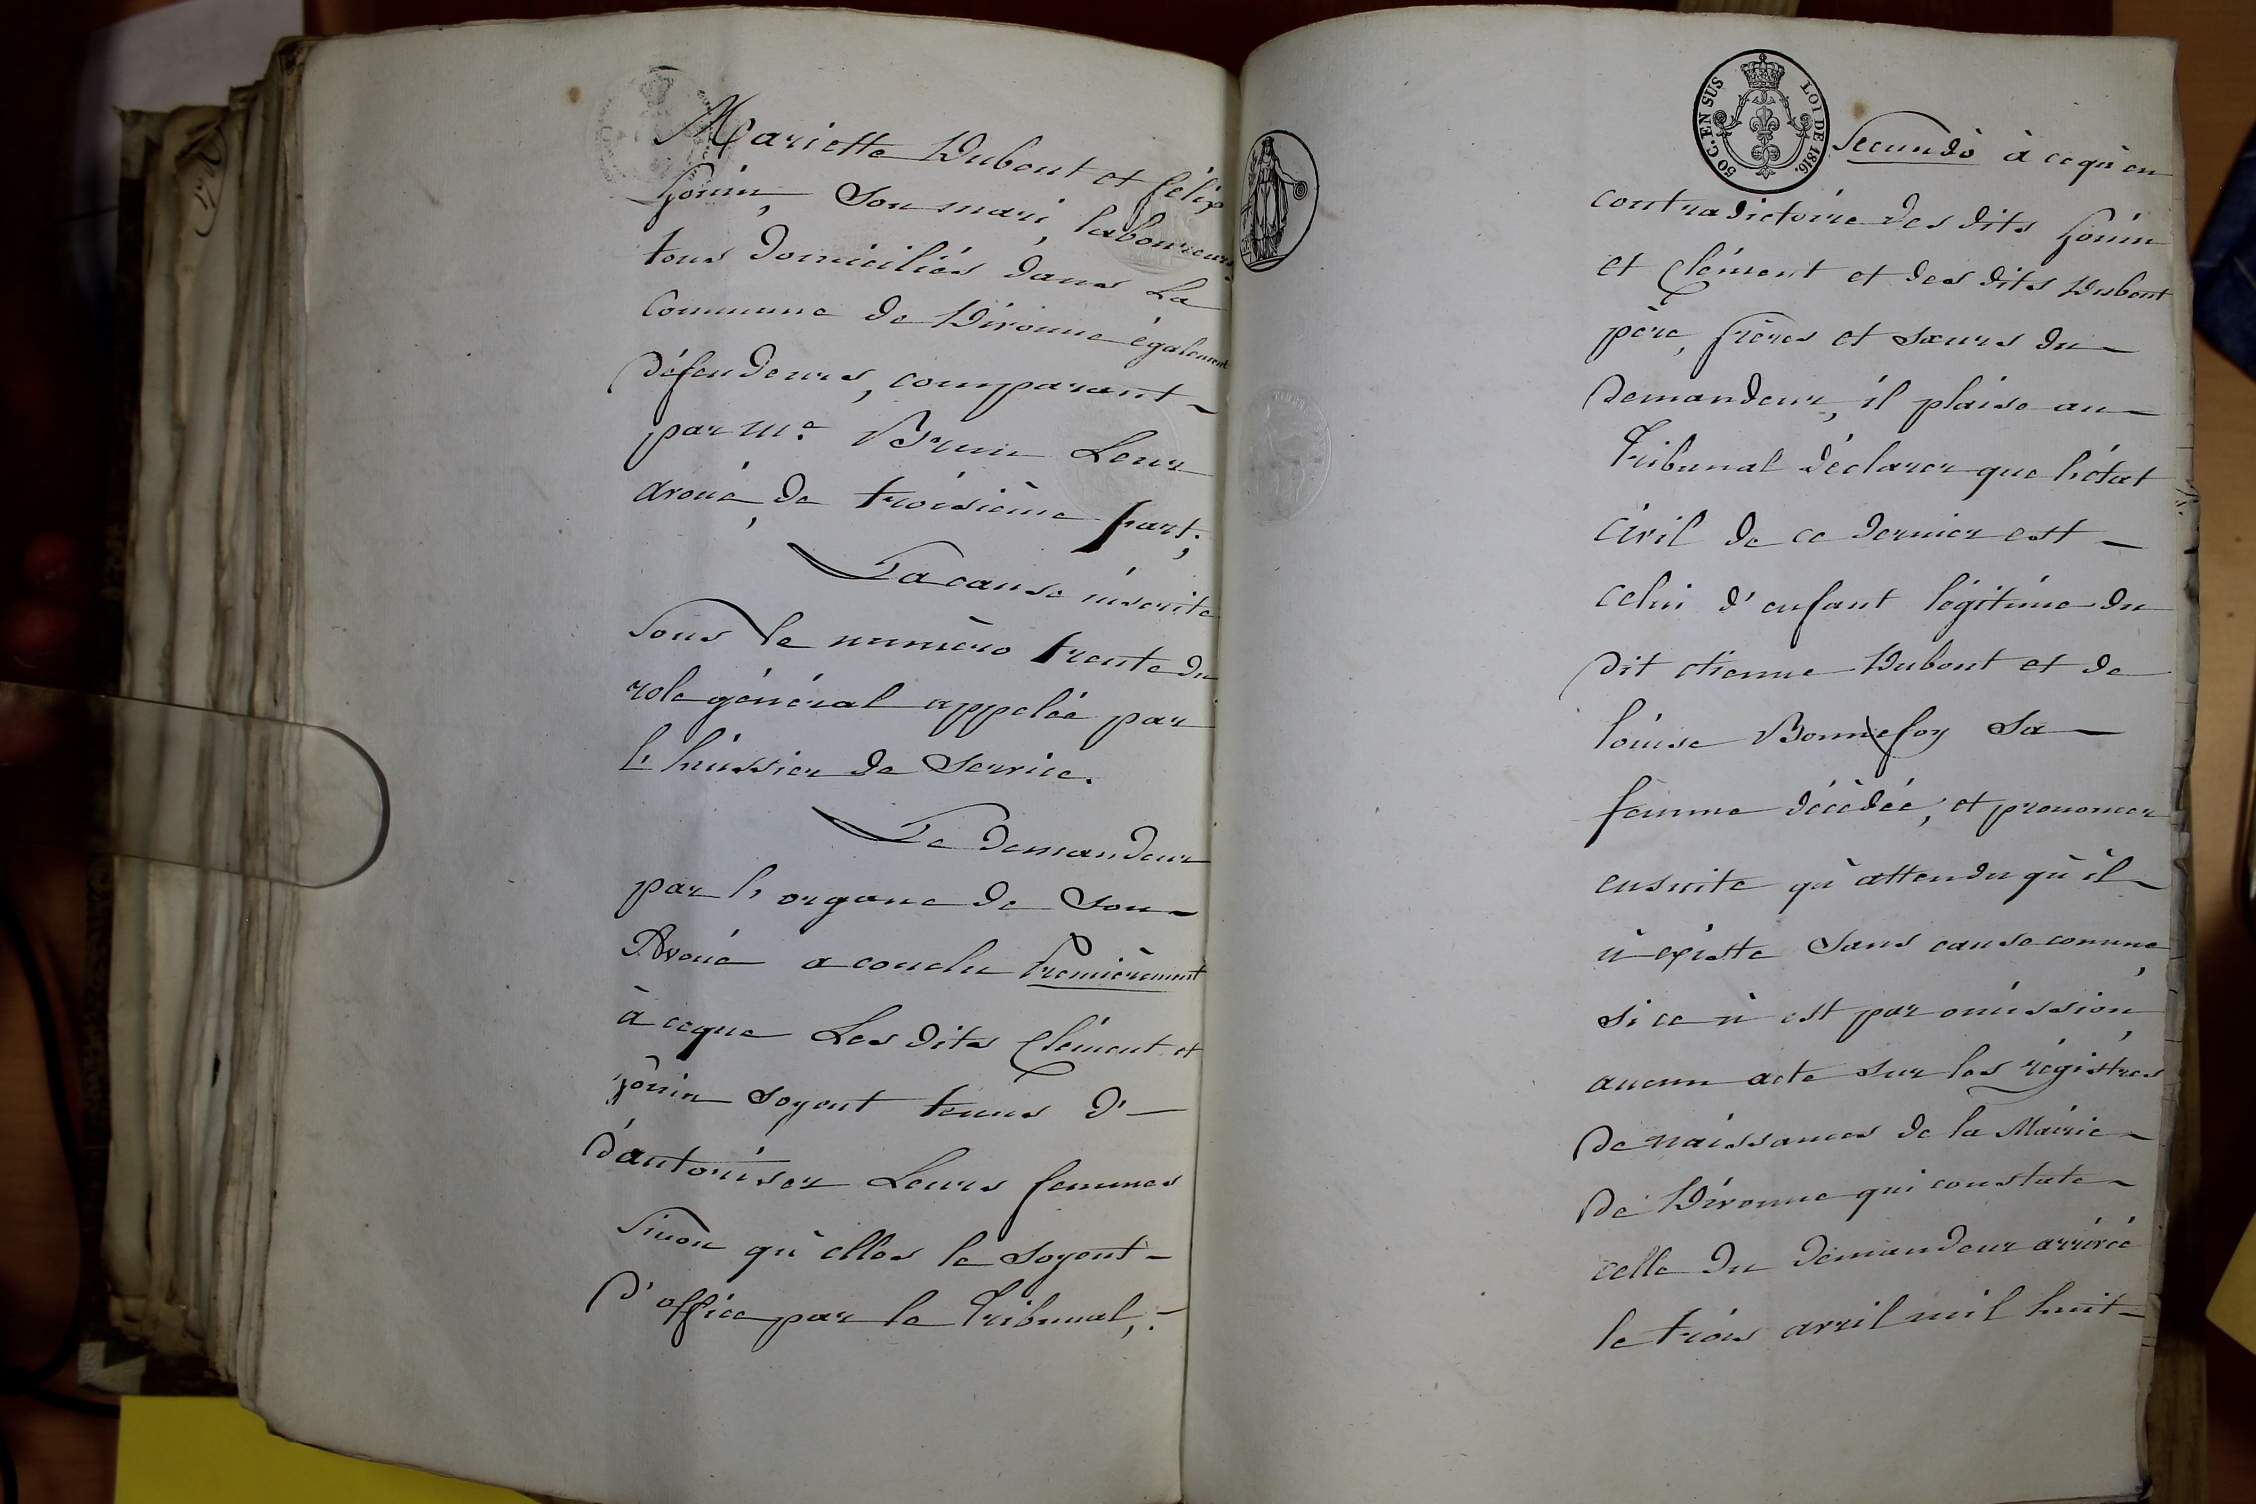 Mariette Dubout et félix
gouin, Son mari, laboureurs
tous domiciliés dans La
Commune de Vironne également
défendeurs, comparant
par Me. Brun Leur
avoué, de troisième part;
La cause inscrite
sous le numéro trente du
role général appelée par
l'huissier de service.
Le demandeur
par l'organe de Son
Avoué a conclu Premièrement
à ceque Les dits Clément et
gouin soyent tenus d'
d'autoriser Leurs femmes
Sinon qu'elles le soyent
d'office par le Tribunal,
50 C. EN SUS
LOI DE 1816.
Secundò à ce qu'en
contradictoire des dits gouin
et Clément et des dits Dubout
père, frères et sœurs du
demandeur, il plaise au
Tribunal déclarer que l'état
civil de ce dernier est
celui d'enfant légitime du
dit etienne Dubout et de
louise Bonnefoy Sa
femme décédée, et prononcer
ensuite qu'attendu qu'il
n'existe sans cause connue,
si ce n'est par omission,
aucun acte sur les régistres
de naissances de la Mairie
de Vironne qui constate
celle du demandeur arrivée
le trois avril mil huit